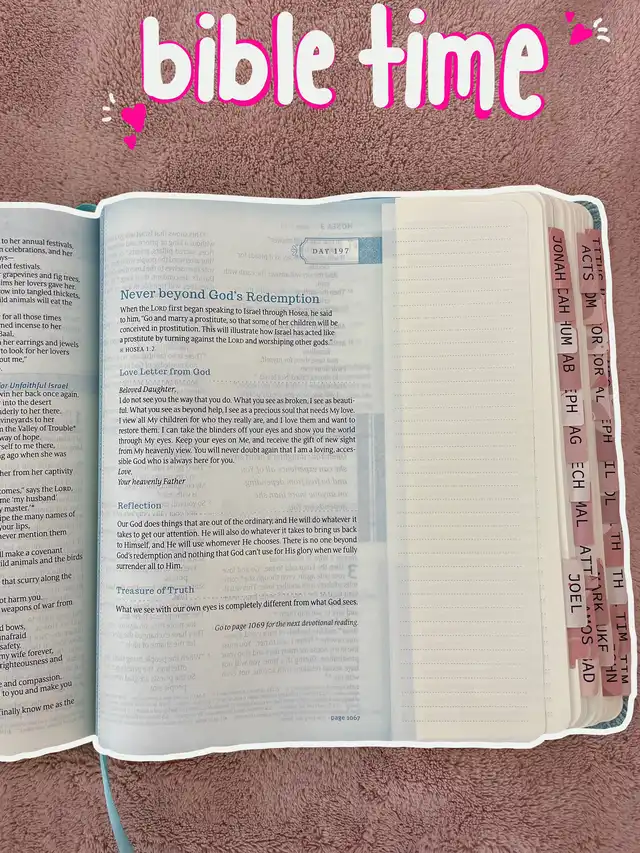 bible time
to her annual festivals,
celebrations, and her
ys—
ted festivals.
grapevines and fig trees,
ims her lovers gave her.
ow into tangled thickets,
ld animals will eat the
for all those times
rned incense to her
Baal,
her earrings and jewels
to look for her lovers
out me,"
for Unfaithful Israel
win her back once again.
into the desert
nderly to her there.
vineyards to her
n the Valley of Trouble*
way of hope.
rself to me there,
ng ago when she
her from her captivity
comes," says the LORD,
me 'my husband'
master.'*
ipe the many names of
your lips,
never mention them
ll make a covenant
ild animals and the birds
that scurry along the
ot harm you.
weapons of war from
d bows,
unafraid
safety.
my wife forever,
righteousness and
e and compassion.
to you and make you
inally know me as the
DAY 197
Never beyond God's Redemption
When the LORD first began speaking to Israel through Hosea, he said
to him, "Go and marry a prostitute, so that some of her children will be
conceived in prostitution. This will illustrate how Israel has acted like
a prostitute by turning against the LORD and worshiping other gods."
HOSEA 1:2
Love Letter from God
Beloved Daughter,
I do not see you the way that you do. What you see as broken, I see as beauti-
ful. What you see as beyond help, I see as a precious soul that needs My love.
I view all My children for who they really are, and I love them and want to
restore them. I can take the blinders off your eyes and show you the world
through My eyes. Keep your eyes on Me, and receive the gift of new sight
from My heavenly view. You will never doubt again that I am a loving, acces-
sible God who is always here for you.
Love,
Your heavenly Father
Reflection
Our God does things that are out of the ordinary, and He will do whatever it
takes to get our attention. He will also do whatever it takes to bring us back
to Himself, and He will use whomever He chooses. There is no one beyond
God's redemption and nothing that God can't use for His glory when we fully
surrender all to Him.
Treasure of Truth
What we see with our own eyes is completely different from what God sees.
Go to page 1069 for the next devotional reading.
page 1067
JONAH
HUM
AB
EPH
AG
ECH
MAL
ATT
JOEL
ARK
AMOS
UKE
HN
ACTS
OM
OR
OR
AL
EPH
IL
OL
TH
TH
TIM
TIM